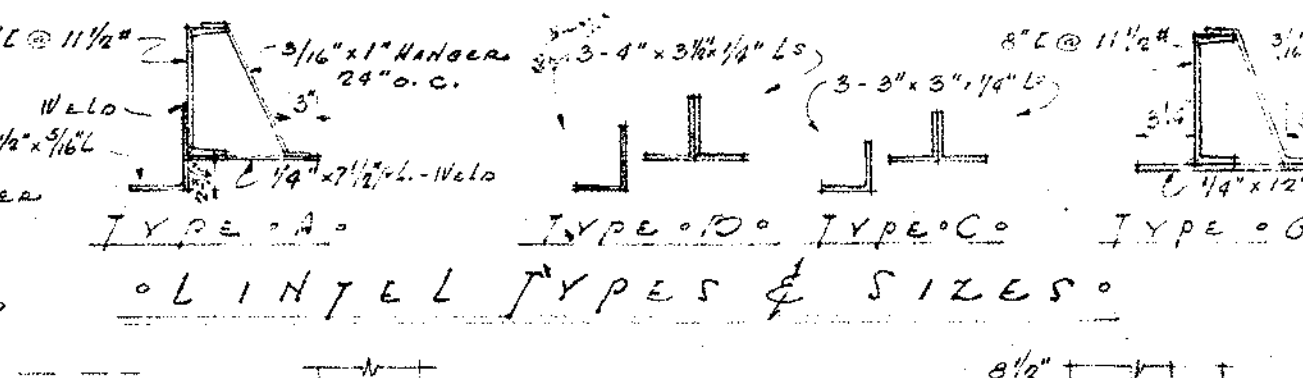 @ 11 1/2#
3/16" x 1" HANGER
24" O.C.
3"
WELD
1/2" x 5/16" L
1/4" x 7 1/2" PL. - WELD
TYPE · A ·
3 - 4" x 3 1/2" x 1/4" LS
TYPE · D ·
3 - 3" x 3" x 1/4" LS
TYPE · C ·
8" [ @ 11 1/2#
3 1/4"
1/4" x 12"
TYPE ·
· LINTEL TYPES & SIZES ·
8 1/2"